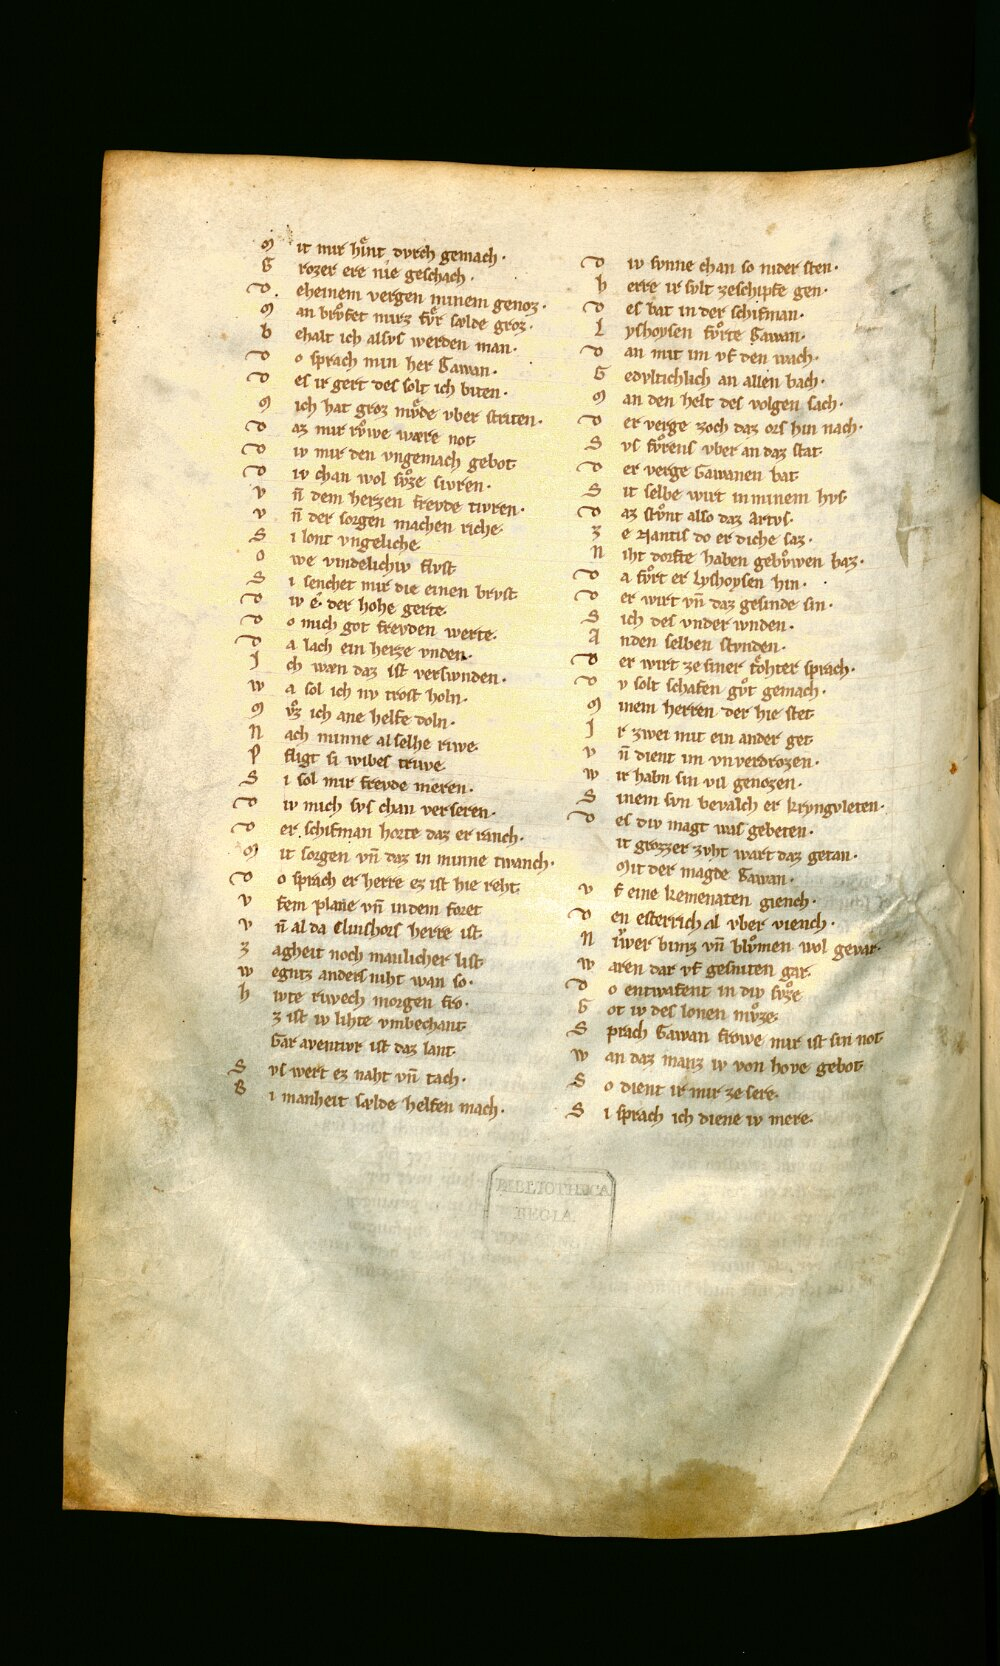 M it mir hͤvnt dvrch gemach·
G rozer ere nie geschach·
D eheinem vergen minem genoz·
M an brvͤfet mirz fvͤr sælde groz·
B ehalt ich alsvs werden man·
D o sprach min her Gawan·
D es ir gert des solt ich biten·
M ich hat groz mvͤde vber striten·
D az mir rvͦwe wære not
D iv mir den vngemach gebot
D iv chan wol svͦze sivren·
V n̄ dem herzen frevde tivren·
V n̄ der sorgen machen riche·
S i lont vngeliche
O we vindelichiv flvst
S i senchet mir die einen brvst
D iv é der hohe gerte
D o mich got frevden werte·
D a lach ein herze vnden·
I ch wæn daz ist verswnden·
W a sol ich nv trost holn·
M vͦz ich ane helfe doln·
N ach minne al selhe rivwe
P fligt si wibes trivwe
S i sol mir frevde meren·
D iv mich svs chan verseren·
D er schifman horte daz er ranch·
M it sorgen vn̄ daz in minne twanch·
D o sprach er herre ez ist hie reht
V fem plane vn̄ in dem foret
V n̄ al da Clinshors herre ist
Z agheit noch manlicher list
W egntz anders niht wan so·
H ivte rivwech morgen fro·
z ist iv lihte vnbechant
Gar aventivr ist daz lant
S vs wert ez naht vn̄ tach·
B i manheit sælde helfen mach·
D iv svnne chan so nider sten·
H erre ir svlt ze schiffe gen·
D es bat in der schifman·
L yshoysen fvͦrte Gawan·
D an mit im vf den wach·
G edvltichlich an allen bach·
M an den helt des volgen sach·
D er verge zoch daz ors hin nach·
S vs fvͦrens vber an daz stat
D er verge Gawanen bat
S it selbe wirt in minem hvs
D az stvͦnt also daz Artvs·
Z e Nantis do er diche saz·
N iht dorfte haben gebvͦwen baz·
D a fvͦrt er Lyshoysen hin·
D er wirt vn̄ daz gesinde sin·
S ich des vnder wnden·
A nden selben stvnden·
D er wirt ze siner tohter sprach·
D v solt schafen gvͦt gemach·
M inem herren der hie stet
I r zwei mit ein ander get
V n̄ dient im vnverdrozen·
W ir habn sin vil genozen·
S inem svn bevalch er Kryngvleten·
D es div magt was gebeten·
it grozzer zvht wart daz getan·
Mit der magde Gawan·
V f eine kemenaten giench·
D en esterrich al vber viench·
N iwer binz vn̄ blvͦmen wol gevar
W aren dar vf gesniten gar
D o entwafent in div svͦze
G ot iv des lonen mvͦze
S prach Gawan frowe mir ist sin not
W an daz manz iv von hove gebot
S o dient ir mir ze sere·
S i sprach ich diene iv mere·
BIBLIOTHECA
REGIA